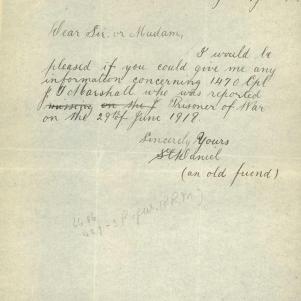 Dear Sir. or Madam,
I would be
pleased if you could give me any
information concerning 1470 Cpl
J Marshall who was reported
on the Prisoner of War
on the 29th of June 1918.
Sincerely Yours
Daniel
(an old friend)